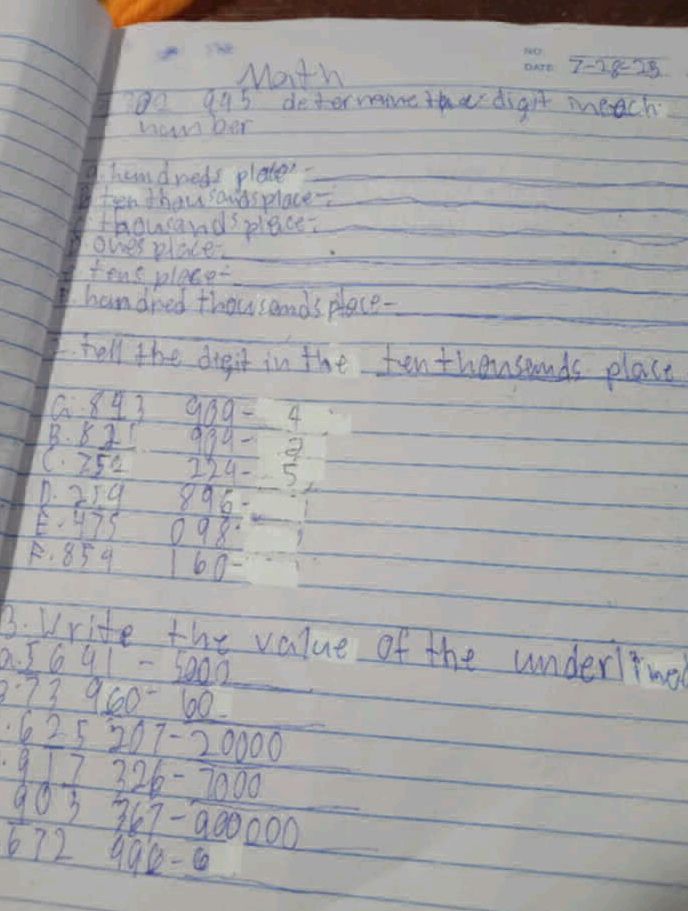 NO.
DATE 7-28-25
Math
945 determine the digit in each
number
a. hundreds place-
B. ten thousands place-
thousands place-
ones place-
tens place-
hundred thousands place-
tell the digit in the ten thousands place
a. 843 909- 4
B. 821 994- 2
C. 752 224- 5
D. 259 896-
E. 475 098-
F. 859 160-
3. Write the value of the underlined
a. 5691 - 5000
73 960- 60
625 207-20000
917 326-7000
903 367-900000
672 996-6